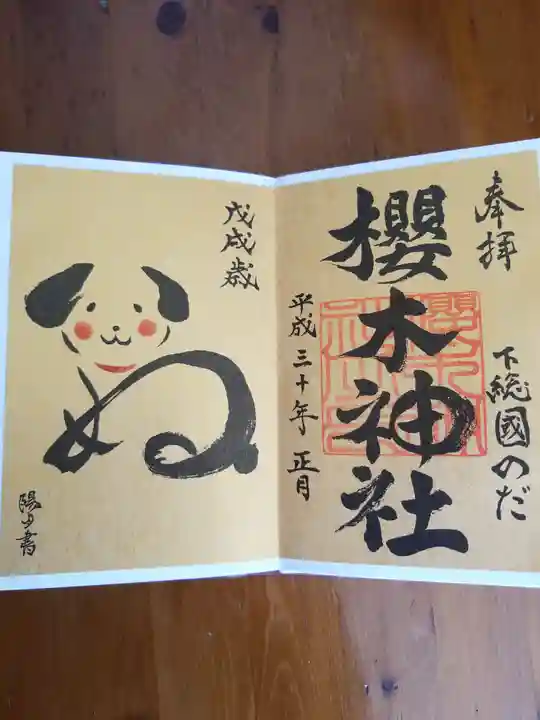 奉拝
下総國のだ
櫻木神社
平成三十年 正月
戊戌歳
ぬ
陽少書